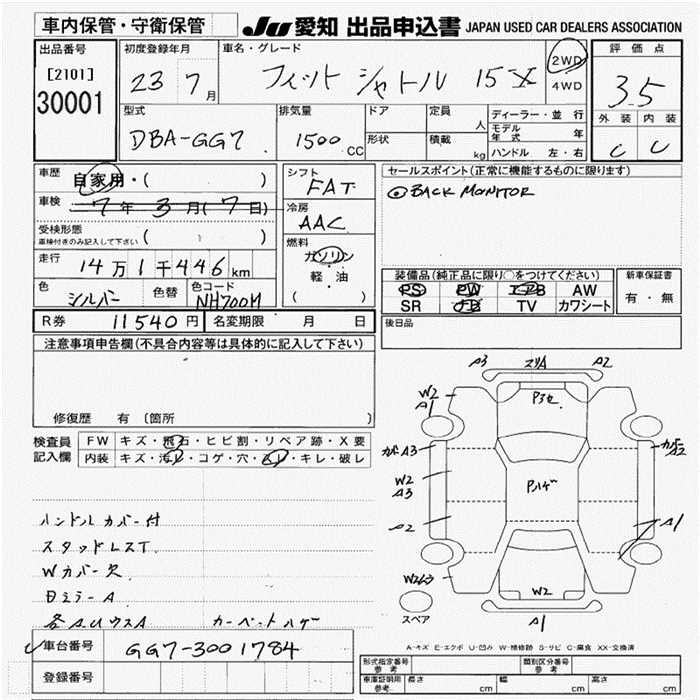 車内保管・守衛保管
JU 愛知 出品申込書 JAPAN USED CAR DEALERS ASSOCIATION
出品番号
[2101]
30001
初度登録年月
23 7月
車名・グレード
フィット シャトル 15X
2WD
4WD
評価点
3.5
外装 内装
C C
型式
DBA-GG7
排気量
1500 CC
ドア
形状
定員 人
積載 kg
ディーラー・並行
モデル年式 年
ハンドル 左・右
車歴
自家用・( )
車検 7年3月(7日)
受検形態
車検付きのみ記入して下さい ( )
走行 14万1千446km
色 シルバー 色替
色コード NH700M
シフト
FAT
冷房
AAC
燃料
ガソリン
軽・油
( )
セールスポイント(正常に機能するものに限ります)
◎BACK MONITOR
装備品(純正品に限り○をつけてください)
PS PW エアB AW
SR ナビ TV カワシート
新車保証書
有・無
後日品
R券 11540円 名変期限 月 日
注意事項申告欄(不具合内容等は具体的に記入して下さい)
修復歴 有 (箇所 )
検査員記入欄
FW キズ・飛石・ヒビ割・リペア跡・X要
内装 キズ・汚レ・コゲ・穴・スレ・キレ・破レ
ハンドルカバー付
スタッドレスT
Wカバー欠
日ミラーA
カーペットハゲ
車台番号 GG7-3001784
登録番号
A3 スリA A2
W2
A1
Pハゲ
W2
A3
A2
A1
W2
A1
スペア
A-キズ E-エクボ U-凹み W-補修跡 S-サビ C-腐食 XX-交換済
形式指定番号
参考
類別区分番号
参考
車庫証明用
参考
長さ cm 幅 cm 高さ cm